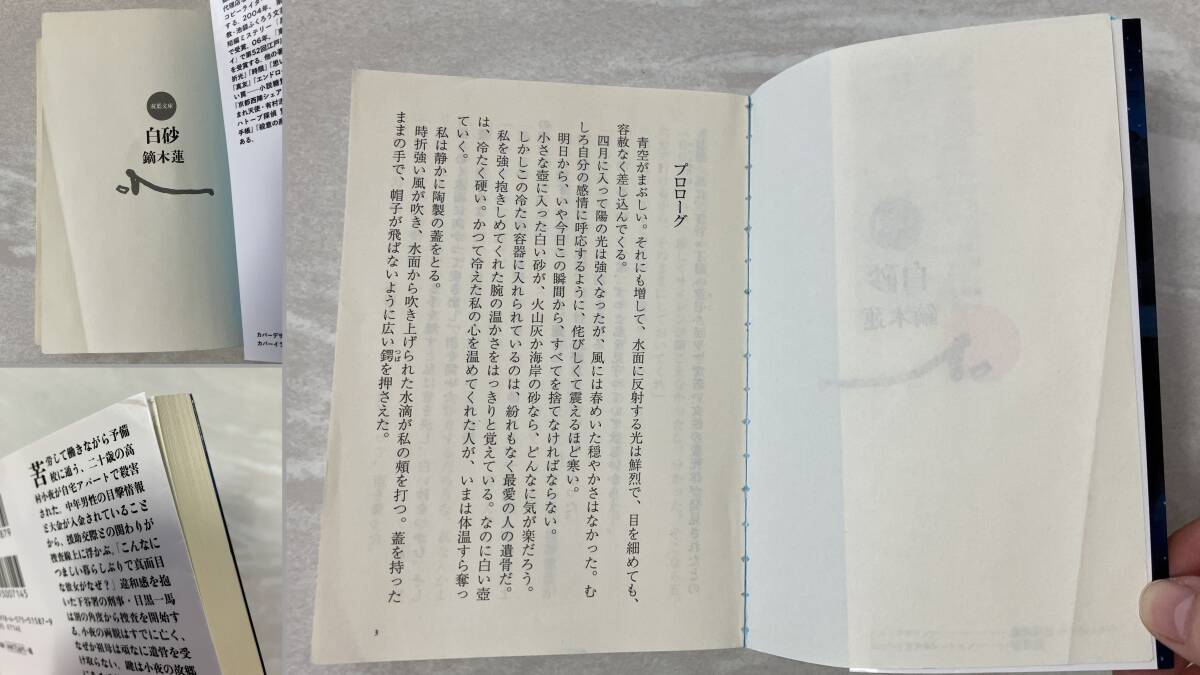 代理店
コピーライター
する。2004年、
教・池袋ふくろう文
短編ミステリー
で受賞。06年、『東
イ』で第52回江戸
を受賞する。他の著
『時限』『思い
『真友』『エンドロー
い罠――小説糖
『京都西陣シェア
まれ天使・有村志
ハトープ探偵
手帳』『殺意の
ある。
カバーデザ
カバーイラ
双葉文庫
白砂
鏑木蓮
苦労して働きながら予備
校に通う、二十歳の高
村小夜が自宅アパートで殺害
された。中年男性の目撃情報
と大金が入金されていること
から、援助交際との関わりが
捜査線上に浮かぶ。「こんなに
つましい暮らしぶりで真面目
な彼女がなぜ?」違和感を抱
いた下谷署の刑事・目黒一馬
は別の角度から捜査を開始す
る。小夜の両親はすでに亡く、
なぜか祖母は頑なに遺骨を受
け取らない。鍵は小夜の故郷
プロローグ
青空がまぶしい。それにも増して、水面に反射する光は鮮烈で、目を細めても、
容赦なく差し込んでくる。
四月に入って陽の光は強くなったが、風には春めいた穏やかさはなかった。む
しろ自分の感情に呼応するように、侘びしくて震えるほど寒い。
明日から、いや今日この瞬間から、すべてを捨てなければならない。
小さな壺に入った白い砂が、火山灰か海岸の砂なら、どんなに気が楽だろう。
しかしこの冷たい容器に入れられているのは、紛れもなく最愛の人の遺骨だ。
私を強く抱きしめてくれた腕の温かさをはっきりと覚えている。なのに白い壺
は、冷たく硬い。かつて冷えた私の心を温めてくれた人が、いまは体温すら奪っ
ていく。
私は静かに陶製の蓋をとる。
時折強い風が吹き、水面から吹き上げられた水滴が私の頰を打つ。蓋を持った
ままの手で、帽子が飛ばないように広い鍔つばを押さえた。
3
白砂
鏑木蓮